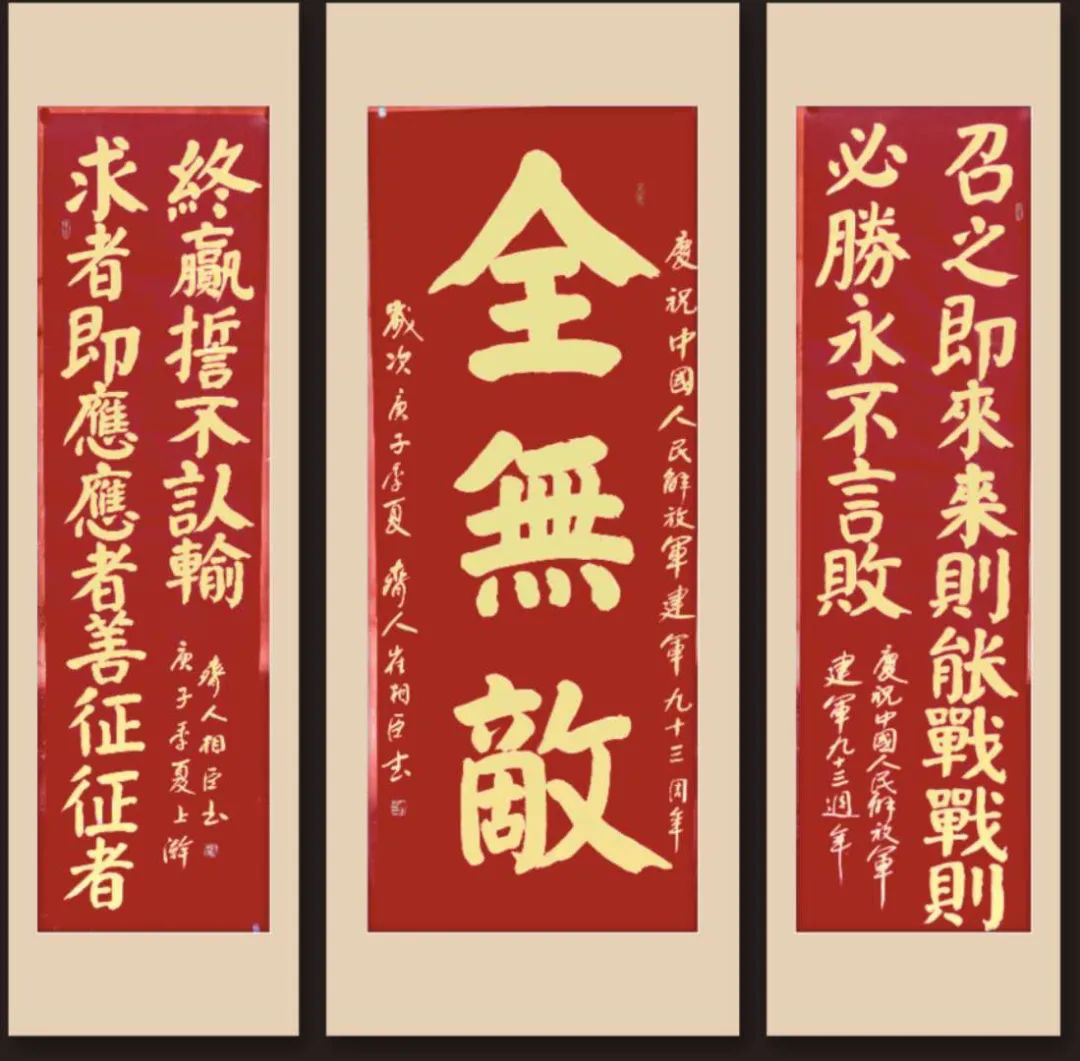 召之即來来則能戰戰則
必勝永不言敗
慶祝中國人民解放軍
建軍九十三週年
慶祝中國人民解放軍建軍九十三周年
全無敵
歲次庚子季夏 齊人崔相臣书
求者即應應者善征征者
終贏誓不認輸
庚子季夏上澣
齊人相臣书